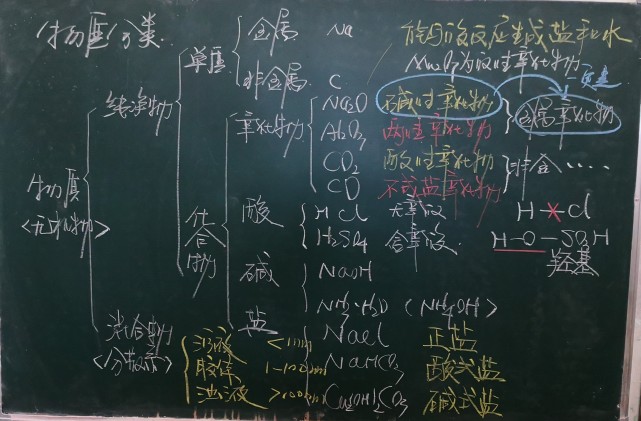 物质分类
能与酸反应生成盐和水
Mn₂O₇为酸性氧化物
一定是
物质
<无机物>
纯净物
单质
金属 Na
非金属 C
化合物
氧化物
Na₂O 碱性氧化物 金属氧化物
Al₂O₃ 两性氧化物
CO₂ 酸性氧化物 非金……
CO 不成盐氧化物
酸
HCl 无氧酸 H—Cl
H₂SO₄ 含氧酸 H—O—SO₃H
羟基
碱
NaOH
NH₃·H₂O (NH₄OH)
盐
NaCl 正盐
NaHCO₃ 酸式盐
Cu₂(OH)₂CO₃ 碱式盐
混合物
<分散系>
溶液 <1nm
胶体 1-100nm
浊液 >100nm